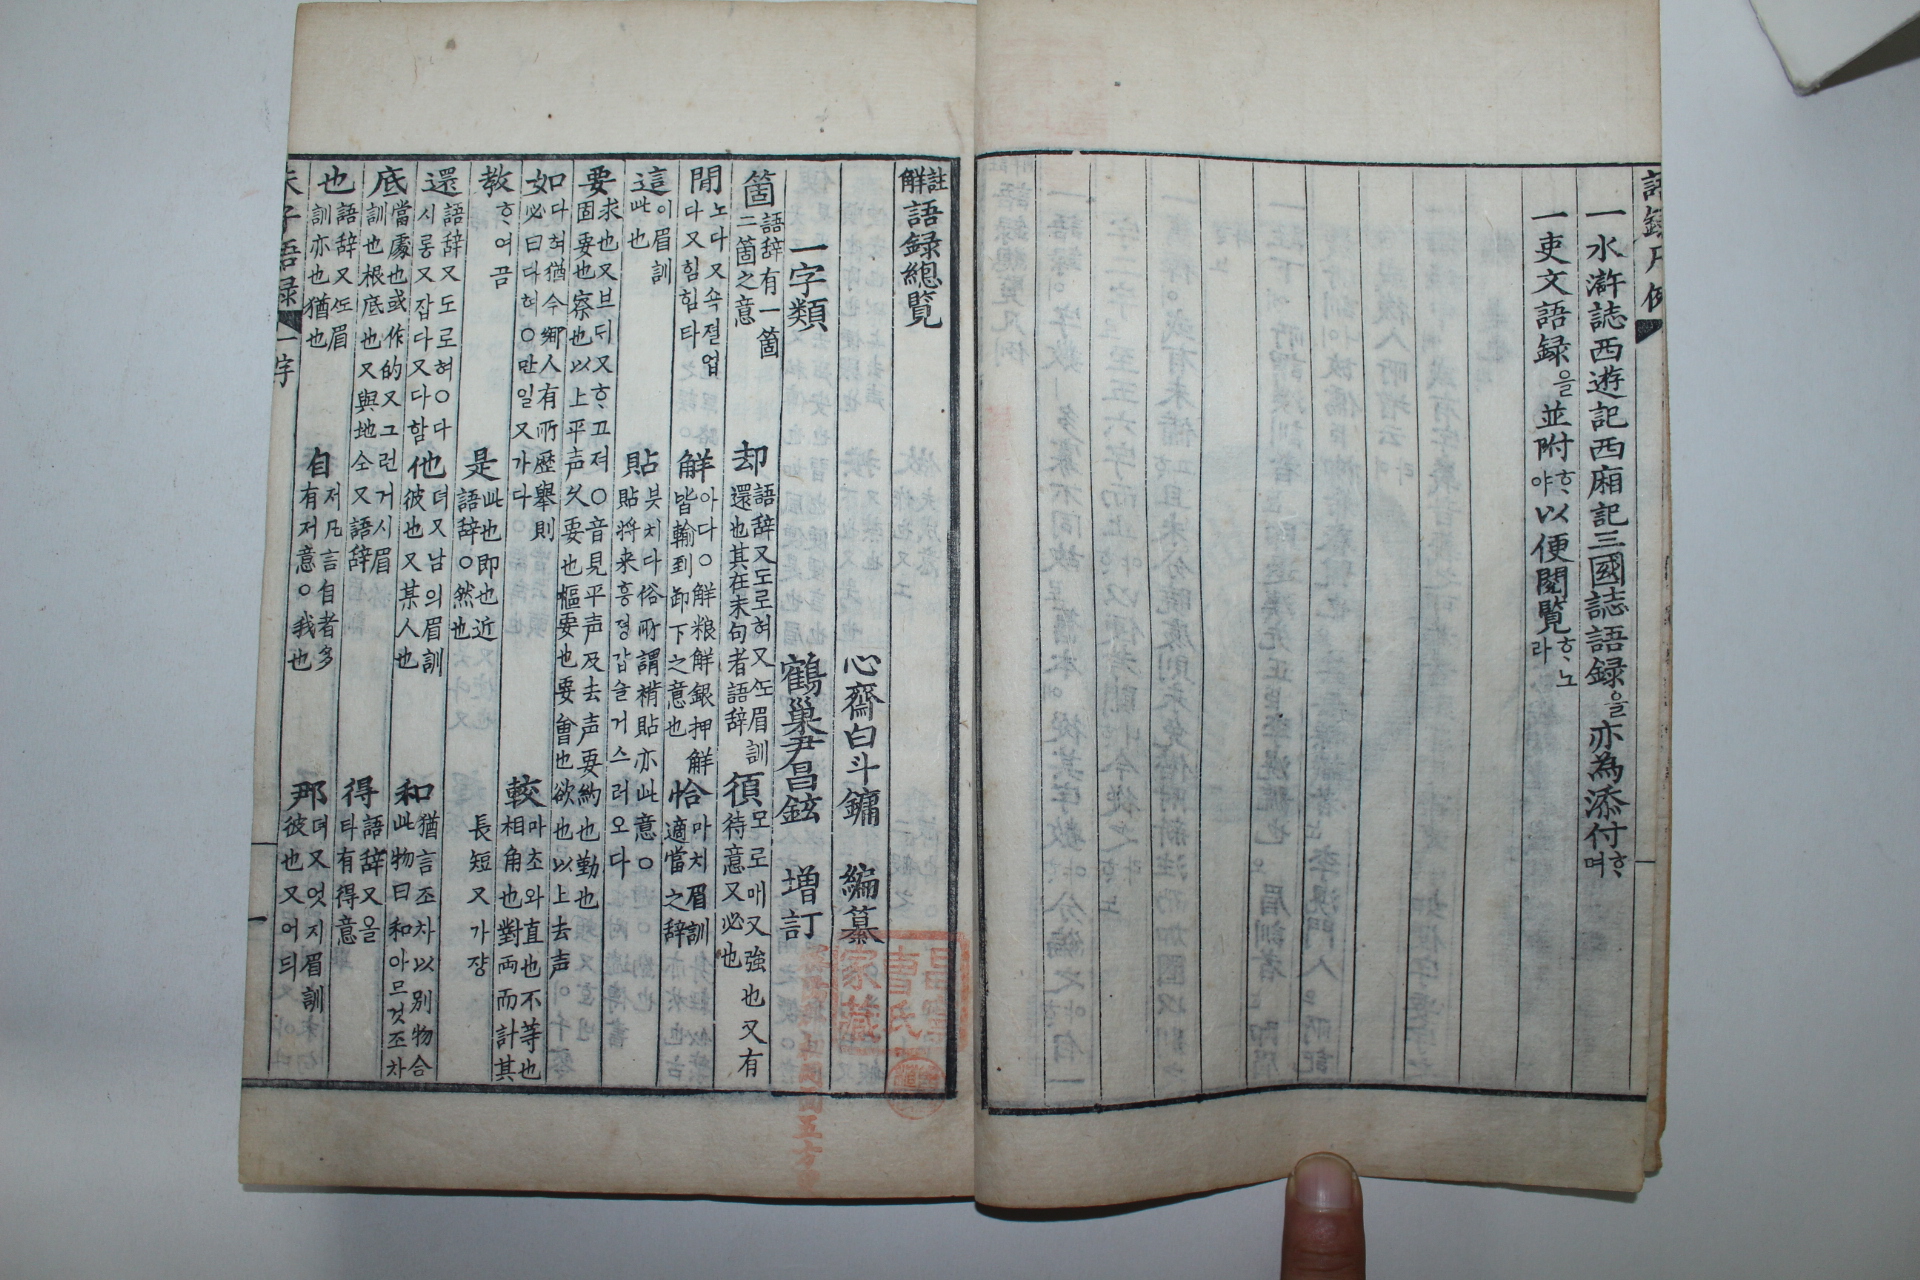 語録凡例
一水滸誌西遊記西廂記三國誌語録을亦為添付ᄒᆞ며
一吏文語録을並附ᄒᆞ야以便閱覽ᄒᆞ노라
註解語録總覽
心齋白斗鏞 編纂
鶴巢尹昌鉉 增訂
一字類
箇 語辞有一箇二箇之意
却 語辞又도로혀又仝眉訓還也其在末句者語辞
須 모로매又強也又有待意又必也
閒 노다又쇽졀업다又힘힘타
觧 아다○觧粮觧銀押觧皆輸到卸下之意也
恰 마치眉訓適當之辞
這 이眉訓此也
貼 븟치다俗所謂褙貼亦此意○貼將来흥졍갑슬거스러오다
要 求也又브듸又ᄒᆞ고져○音見平声及去声要約也勤也固要也察也以上平声久要也樞要也要會也欲也以上去声
如 다혀猶今鄉人有所歷舉則必曰다혀○만일又가다
較 마초와直也不等也相角也對両而計其長短又가쟝
教 ᄒᆞ여곰
是 此也即也近語辞○然也
還 語辞又도로혀○다시롱又잡다又다함
他 뎌又남의眉訓彼也又某人也
和 猶言조차以別物合此物曰和아므것조차
底 當處也或作的又그런거시眉訓也根底也又與地仝又語辞
得 語辞又올타有得意
也 語辞又仝眉訓亦也猶也
自 저凡言自者多有저意○我也
那 뎌又엇지眉訓彼也又어듸
朱子語録 一字
一